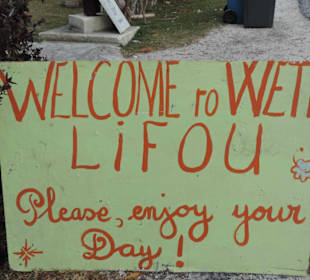 WELCOME TO WET
LiFOU
Please, enjoy your
Day!